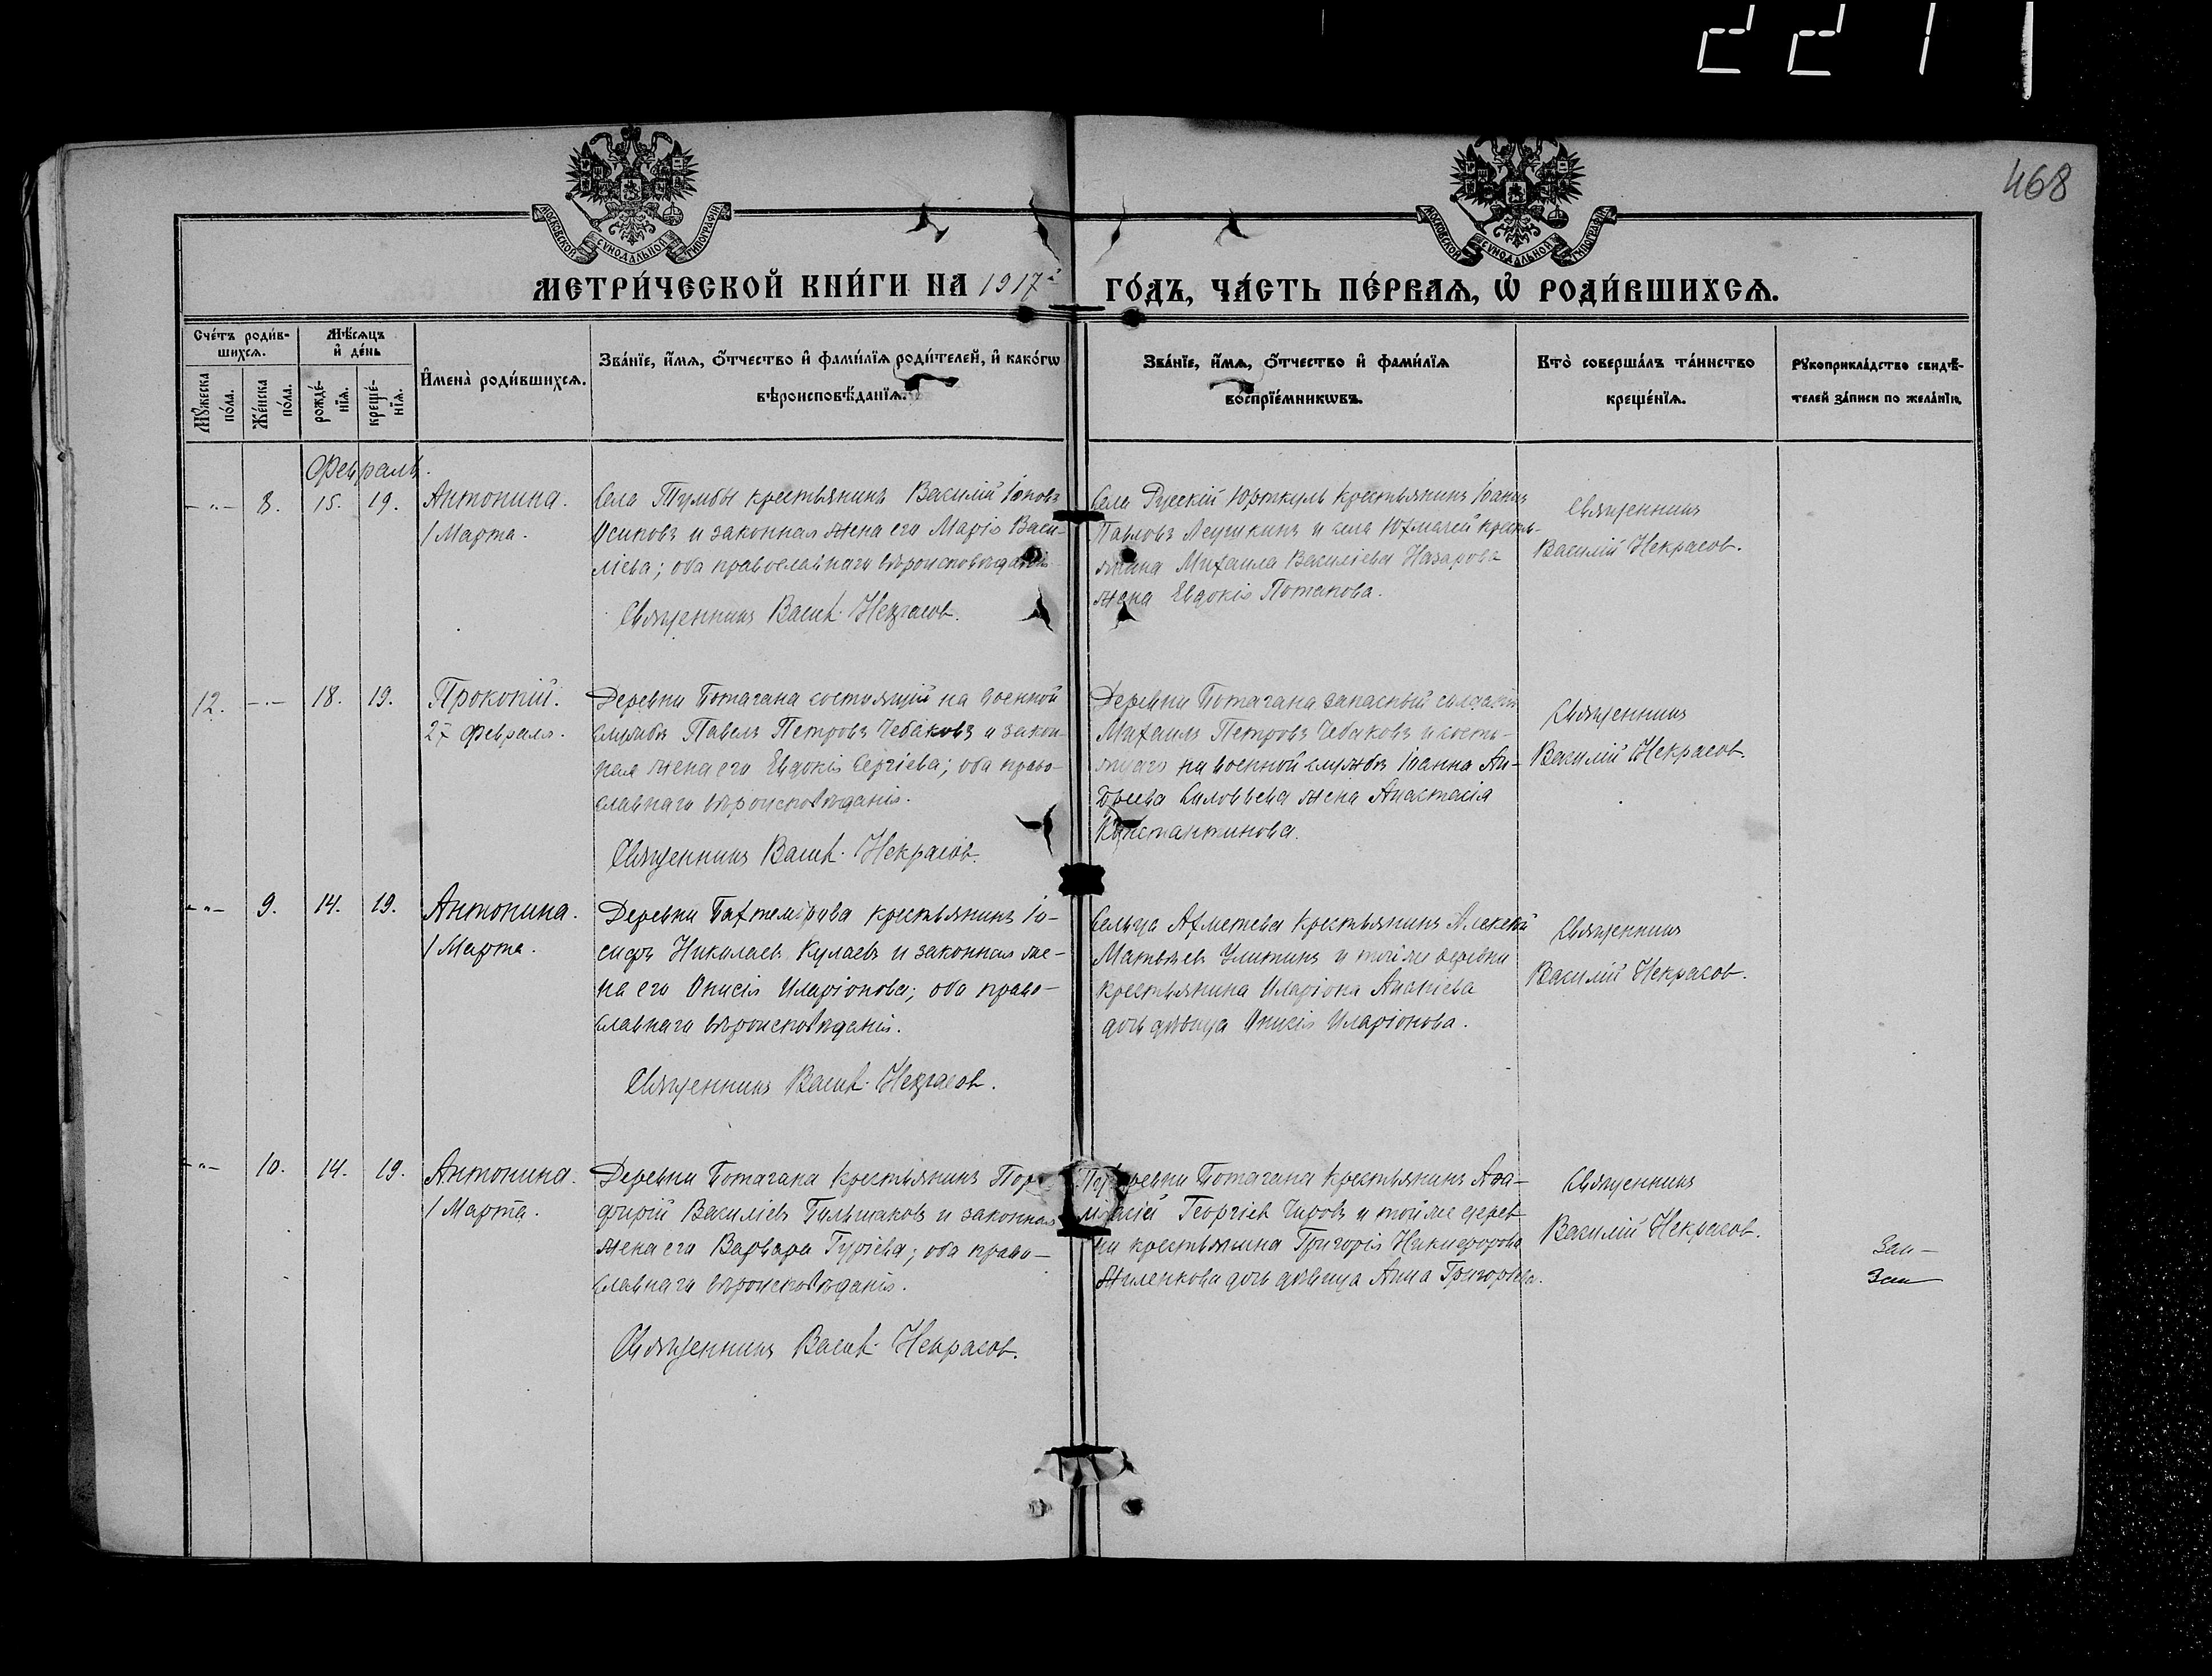 2211
468
МОСКОВСКОЙ СѴНОДАЛЬНОЙ ТИПОГРАФІИ
МОСКОВСКОЙ СѴНОДАЛЬНОЙ ТИПОГРАФІИ
МЕТРИ́ЧЕСКОЙ КНИ́ГИ НА 1917й ГО́ДЪ, ЧА́СТЬ ПЕ́РВАѦ, Ѡ҆ РОДИ́ВШИХСѦ.
Сче́тъ роди́в-
шихсѧ.
Мꙋ́жеска по́ла.
Же́нска по́ла.
Мѣ́сѧцъ
и҆ де́нь
рожде́-
нїѧ.
креще́-
нїѧ.
И҆мена̀ роди́вшихсѧ.
Зва́нїе, и҆́мѧ, ѻ҆́тчество и҆ фами́лїѧ роди́телей, и҆ како́гѡ
вѣроисповѣ́данїѧ.
Зва́нїе, и҆́мѧ, ѻ҆́тчество и҆ фами́лїѧ
воспрїе́мникѡвъ.
Кто̀ соверша́лъ та́инство
креще́нїѧ.
Рꙋкоприкла́дство свидѣ́-
телей за́писи по жела́нїю.
Февраль.
-"- 8. 15. 19. Антонина.
1 Марта.
Села Тумбы крестьянинъ Василій Іоновъ
Осиповъ и законная жена его Марія Васи-
ліева; оба православнаго вѣроисповѣданія
Священникъ Васил. Некрасов.
Села Русскій Юрткуль крестьянинъ Іоаннъ
Павловъ и села Юхмачей кресть-
янина Михаила Василіева Назарова
жена Евдокія Потапова.
Священникъ
Василій Некрасов.
12. -"- 18. 19. Прокопій.
27 Февраля.
Деревни Ботагана состоящій на военной
службѣ Павелъ Петровъ Чебаковъ и закон-
ная жена его Евдокія Сергіева; оба право-
славнаго вѣроисповѣданія.
Священникъ Васил. Некрасов.
Деревни Ботагана запасный солдатъ
Михаилъ Петровъ Чебаковъ и состо-
ящаго на военной службѣ Іоанна Ан-
дреева Соловьева жена Анастасія
Константинова.
Священникъ
Василій Некрасов.
-"- 9. 14. 19. Антонина.
1 Марта.
Деревни Бахтемирова крестьянинъ Іо-
сифъ Николаевъ Кулаевъ и законная же-
на его Анисія Иларіонова; оба право-
славнаго вѣроисповѣданія.
Священникъ Васил. Некрасов.
Сельца Ахметева крестьянинъ Алексѣй
Матвѣевъ Улитинъ и той же деревни
крестьянина Иларіона Ананіева
дочь дѣвица Анисія Иларіонова.
Священникъ
Василій Некрасов.
-"- 10. 14. 19. Антонина.
1 Марта.
Деревни Ботагана крестьянинъ Пор-
фирій Василіевъ и законная
жена его Варвара Гуріева; оба право-
славнаго вѣроисповѣданія.
Священникъ Васил. Некрасов.
Деревни Ботагана крестьянинъ
Георгіев Чировъ и той же дерев
ни крестьянина Григорія Никифорова
Жиленкова дочь дѣвица Анна Григоріева.
Священникъ
Василій Некрасов.